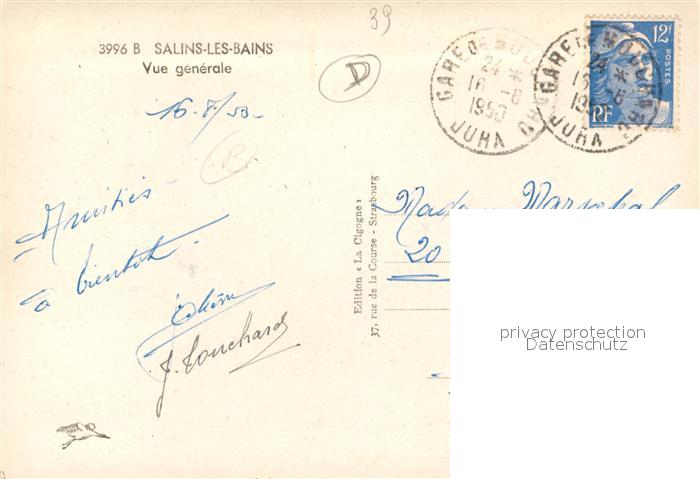 39
3996 B SALINS-LES-BAINS
Vue générale
D
16-8/53-
B
Amitiés -
à bientôt.
J. Touchard
Edition « La Cigogne »
37, rue de la Course - Strasbourg
GARE DE
24 *
16 -8
JURA
GARE DE
JURA
12F
POSTES
RF
Made Maréchal
20
privacy protection
Datenschutz